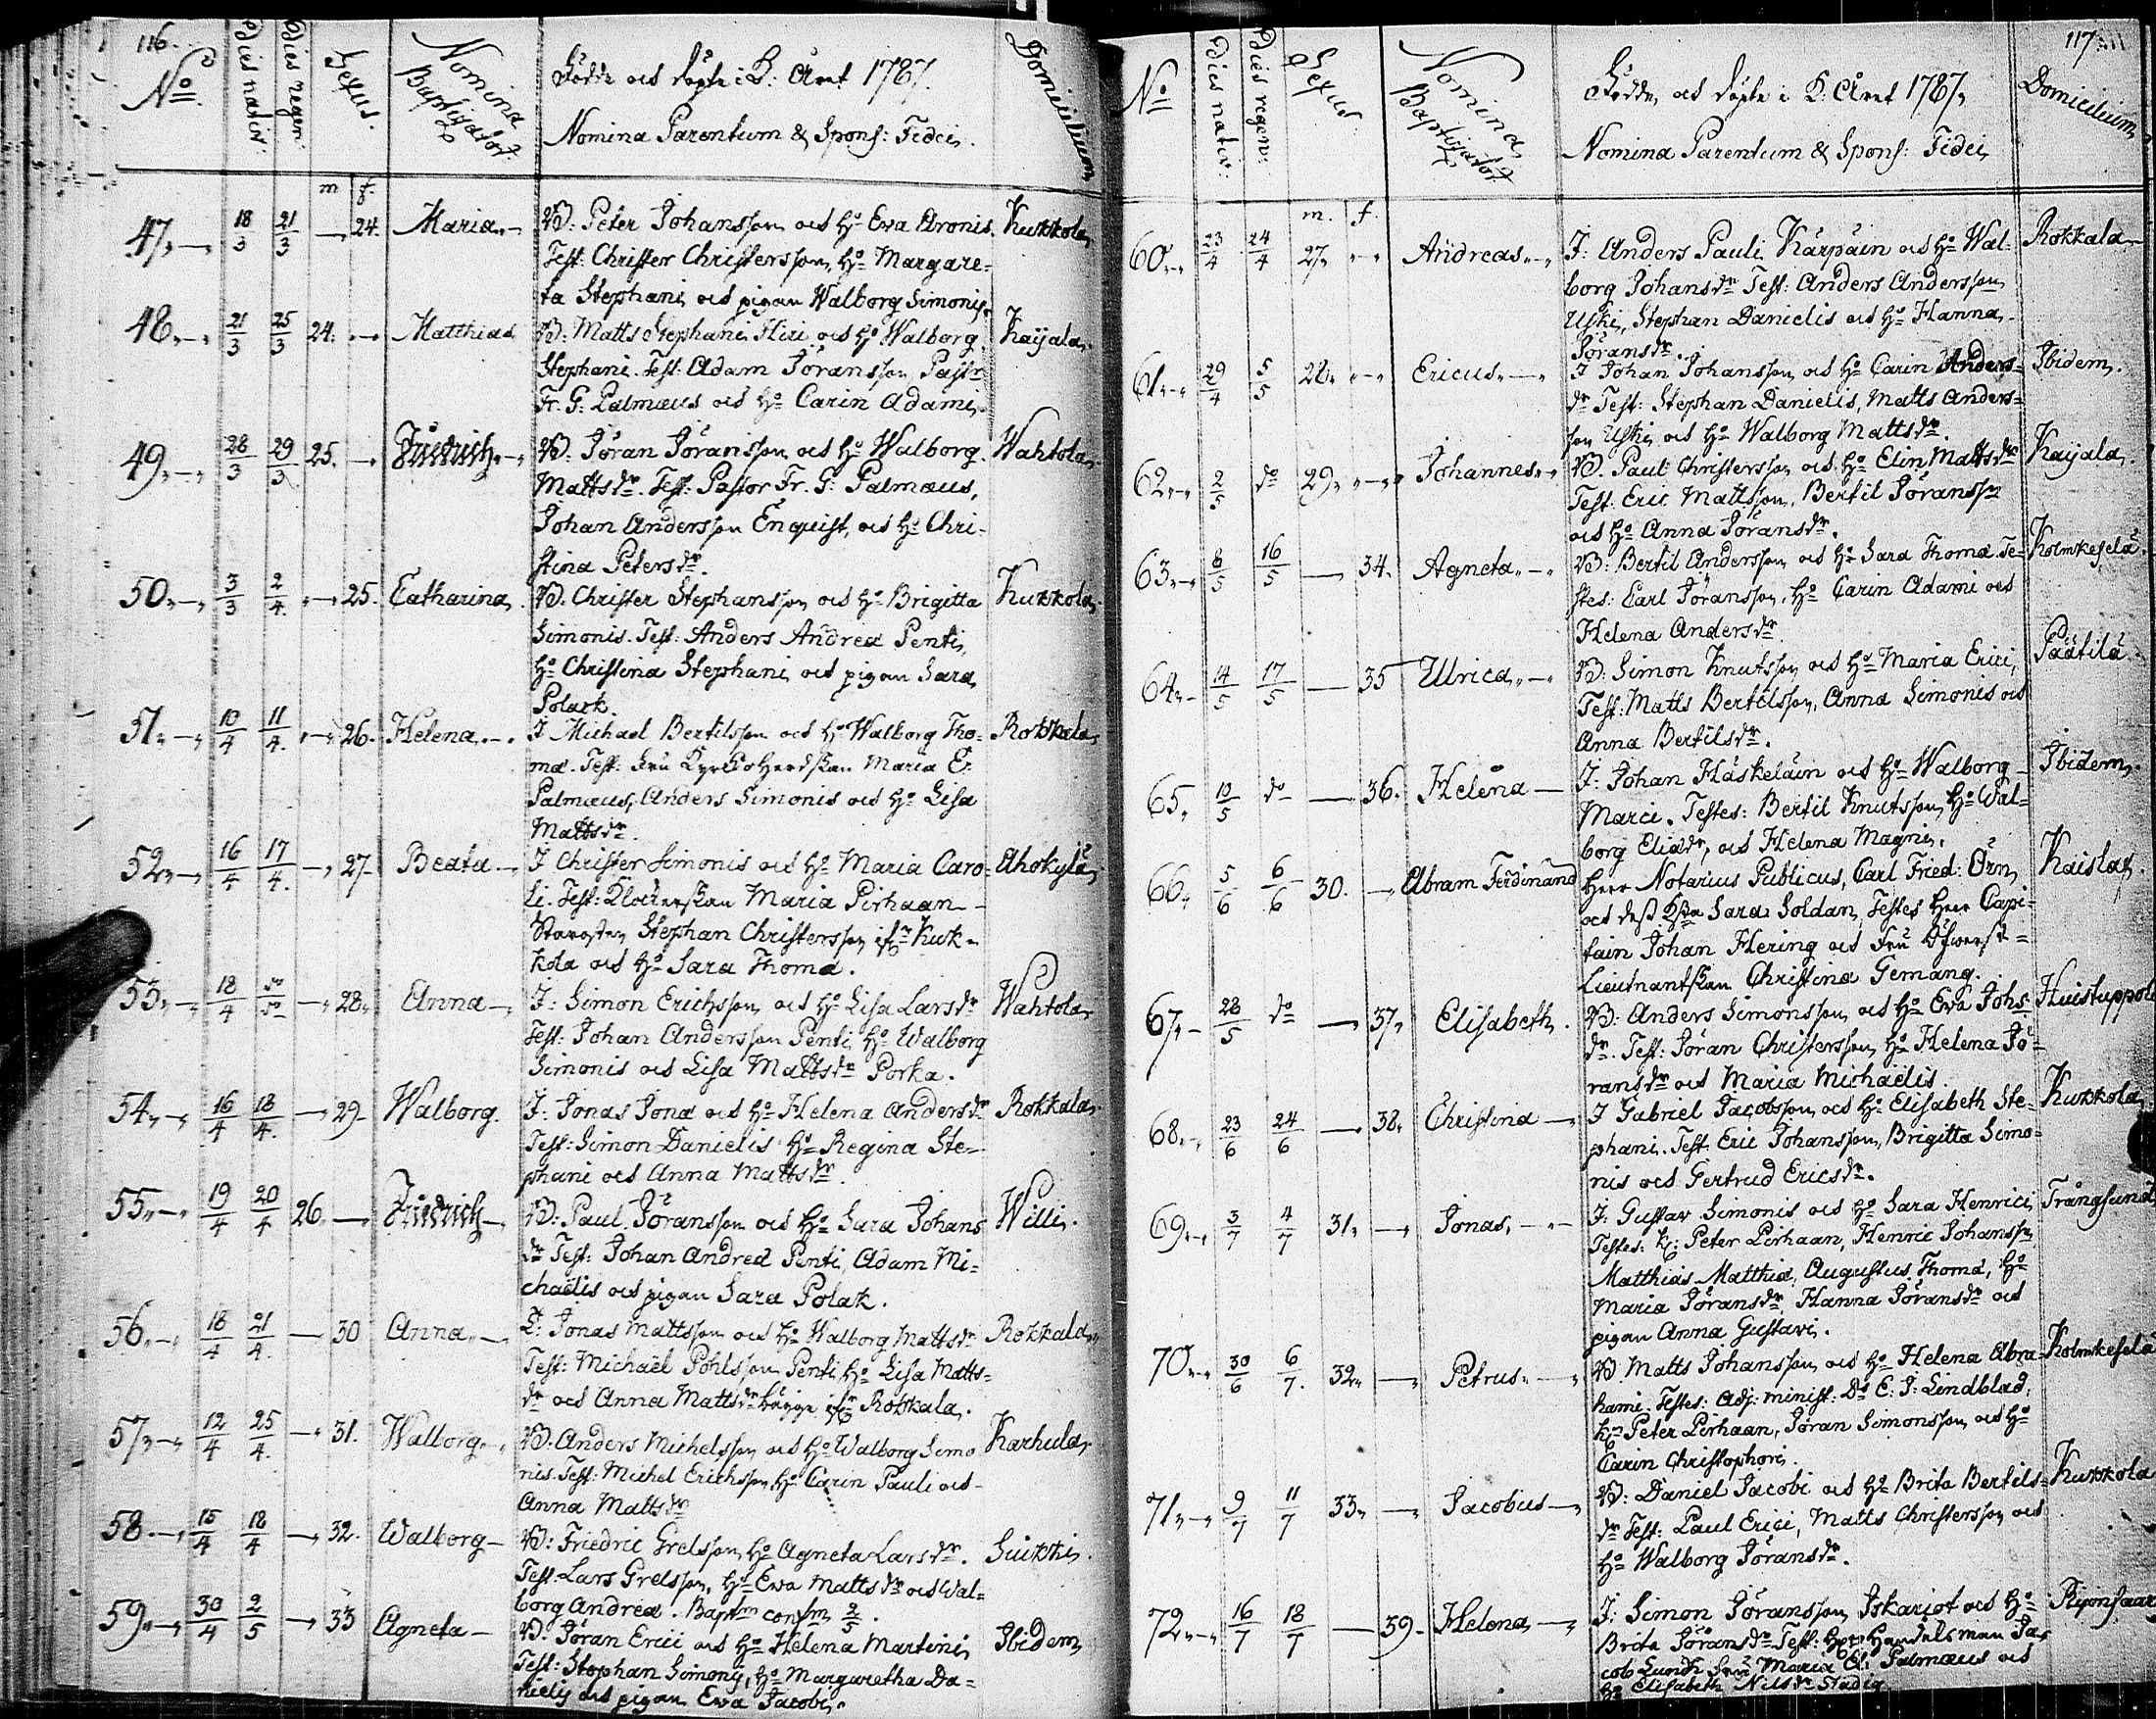 116.
No
dies nativ:
dies regen:
Sexus.
Nomina Baptisator.
Födde och döpte i B: Året 1787.
Nomina Parentum & Spons: Fidei.
Domicilium
m f.
47 18/3 21/3 — 24. Maria B: Peter Johansson och Ho Eva Aronis. Kukkola
Test: Christer Christersson, Ho Margare=
ta Stephani och pigan Walborg Simonis.
48 21/3 25/3 24. — Matthias B: Matts Stephani Hiri och Ho Walborg Kaijala.
Stephani. Test: Adam Jöransson, Pastr
Fr. G: Palmæus och Ho Carin Adami.
49 28/3 29/3 25. — Friedrich B: Jöran Jöransson och Ho Walborg Wahtola
Mattsdr. Test: Pastor Fr. G: Palmæus,
Johan Andersson Enquist, och Ho Chri-
stina Petersdr.
50 3/3 2/4. — 25. Catharina B. Christer Stephansson och Ho Brigitta Kukkola
Simonis. Test: Anders Andreæ Penti,
Ho Christina Stephani och pigan Sara
Polack.
51 10/4 11/4. — 26. Helena I Michael Bertilsson och Ho Walborg Tho= Rokkala
mæ. Test: Fru Kyrckoherdskan Maria E:
Palmæus, Anders Simonis och Ho Lisa
Mattsdr.
52 16/4 17/4. — 27. Beata I Christer Simonis och Ho Maria Caro= Ahokylä
li. Test: Klockarskan Maria Pirhaan
Starosten Stephan Christersson ifr Kuk-
kola och Ho Sara Thomæ.
53 18/4 do — 28. Anna I: Simon Erichsson och Ho Lisa Larsdr Wahtola
Test: Johan Andersson Penti, Ho Walborg
Simonis och Lisa Mattsdr Porka.
54 16/4 18/4. — 29. Walborg. I: Jonas Jonæ och Ho Helena Andersdr Rokkala
Test: Simon Danielis Ho Regina Ste-
phani och Anna Mattsdr.
55 19/4 20/4 26. — Friedrich B: Paul Jöransson och Ho Sara Johans Willi.
dr Test: Johan Andreæ Penti, Adam Mi=
chaëlis och pigan Sara Polak.
56 18/4 21/4. — 30 Anna I: Jonas Mattsson och Ho Walborg Mattsdr Rokkala
Test: Michaël Pohlsson Penti, Ho Lisa Matts=
dr och Anna Mattsdr bägge ifr Rokkala.
57 12/4 25/4. — 31. Walborg B. Anders Michelsson och Ho Walborg Simo Karhula
nis. Test: Michel Erichsson, Ho Carin Pauli och
Anna Mattsdr
58 15/4 18/4 — 32. Walborg B: Friedric Grelsson, Ho Agneta Larsdr. Suikki.
Test: Lars Grelsson, Ho Eva Mattsdr och Wal=
borg Andreæ. Baptm confm 2/5.
59 30/4 2/5 — 33 Agneta B. Jöran Erici och Ho Helena Martini Ibidem
Test: Stephan Simonis, Ho Margaretha Da=
nielis och pigan Eva Jacobi.
117
No
dies nativ:
dies regen:
Sexus
Nomina Baptisator.
Födde, och döpte i B: Året 1787,
Nomina Parentum & Spons: Fidei,
Domicilium
m. f.
60 23/4 24/4 27. Andreas I: Anders Pauli Kärpäin och Ho Wal= Rokkala
borg Johansdr Test: Anders Andersson
Uski, Stephan Danielis och Ho Hanna
Jöransdr.
61 29/4 5/5 28. Ericus I Johan Johansson och Ho Carin Anders= Ibidem.
dr Test: Stephan Danielis, Matts Anders=
son Uski och Ho Walborg Mattsdr.
62 2/5 do 29. Johannes B. Paul Christersson och Ho Elin Mattsdr Kaijala.
Test: Eric Mattsson, Bertil Jöranssn
och Ho Anna Jöransdr.
63 8/5 16/5 — 34. Agneta B: Bertil Andersson och Ho Sara Thomæ. Te= Kolmkeselä
stes: Carl Jöransson, Ho Carin Adami och
Helena Andersdr.
64 14/5 17/5 — 35 Ulrica B: Simon Knutsson och Ho Maria Erici, Päätilä.
Test: Matts Bertilsson, Anna Simonis och
Anna Bertilsdr.
65 10/5 do — 36. Helena — I: Johan Häskeläin och Ho Walborg Ibidem.
Marci. Testes: Bertil Knutsson, Ho Wal=
borg Eliædr, och Helena Magni.
66. 5/6 6/6 30. — Abram Ferdinand Herr Notarius Publicus, Carl Fried: Örn, Kaisla
och dess Sara Soldan, Testes Herr Capi=
tain Johan Hering och Fru Öfwerst=
Lieutnantskan Christina Gemang.
67 28/5 do — 37. Elisabeth. B: Anders Simonsson och Ho Eva Johs Huistuppola
dr. Test: Jöran Christersson, Ho Helena Jö=
ransdr och Maria Michaëlis.
68 23/6 24/6 — 38. Christina I Gabriel Jacobsson och Ho Elisabeth Ste= Kukkola
phani. Test: Eric Johansson, Brigitta Simo=
nis och Gertrud Ericsdr.
69 3/7 4/7 31. — Jonas I: Gustav Simonis och Ho Sara Henrici Trångsund
Testes: K: Peter Pirhaan, Henric Johanssn
Matthias Matthiæ, Augustus Thomæ, Ho
Maria Jöransdr, Hanna Jöransdr och
pigan Anna Gustavi.
70 30/6 6/7. 32. — Petrus B. Matts Johansson och Ho Helena Abra- Kolmkeselä
hami. Testes: Adj: minist: Ds E: J: Lindblad,
Kn Peter Pirhaan, Jöran Simonsson och Ho
Carin Christophori.
71 9/7 11/7 33. — Jacobus B: Daniel Jacobi och Ho Brita Bertils= Kukkola
dr Test: Paul Erici, Matts Christersson och
Ho Walborg Jöransdr.
72 16/7 18/7 — 39. Helena I: Simon Jöransson Iskariot och Ho Ripinsaari
Brita Jöransdr Test: Handelsman Ja
cob Lundh Fru Maria E: Palmæus och
Ho Elisabeth Nilsdr Stadig